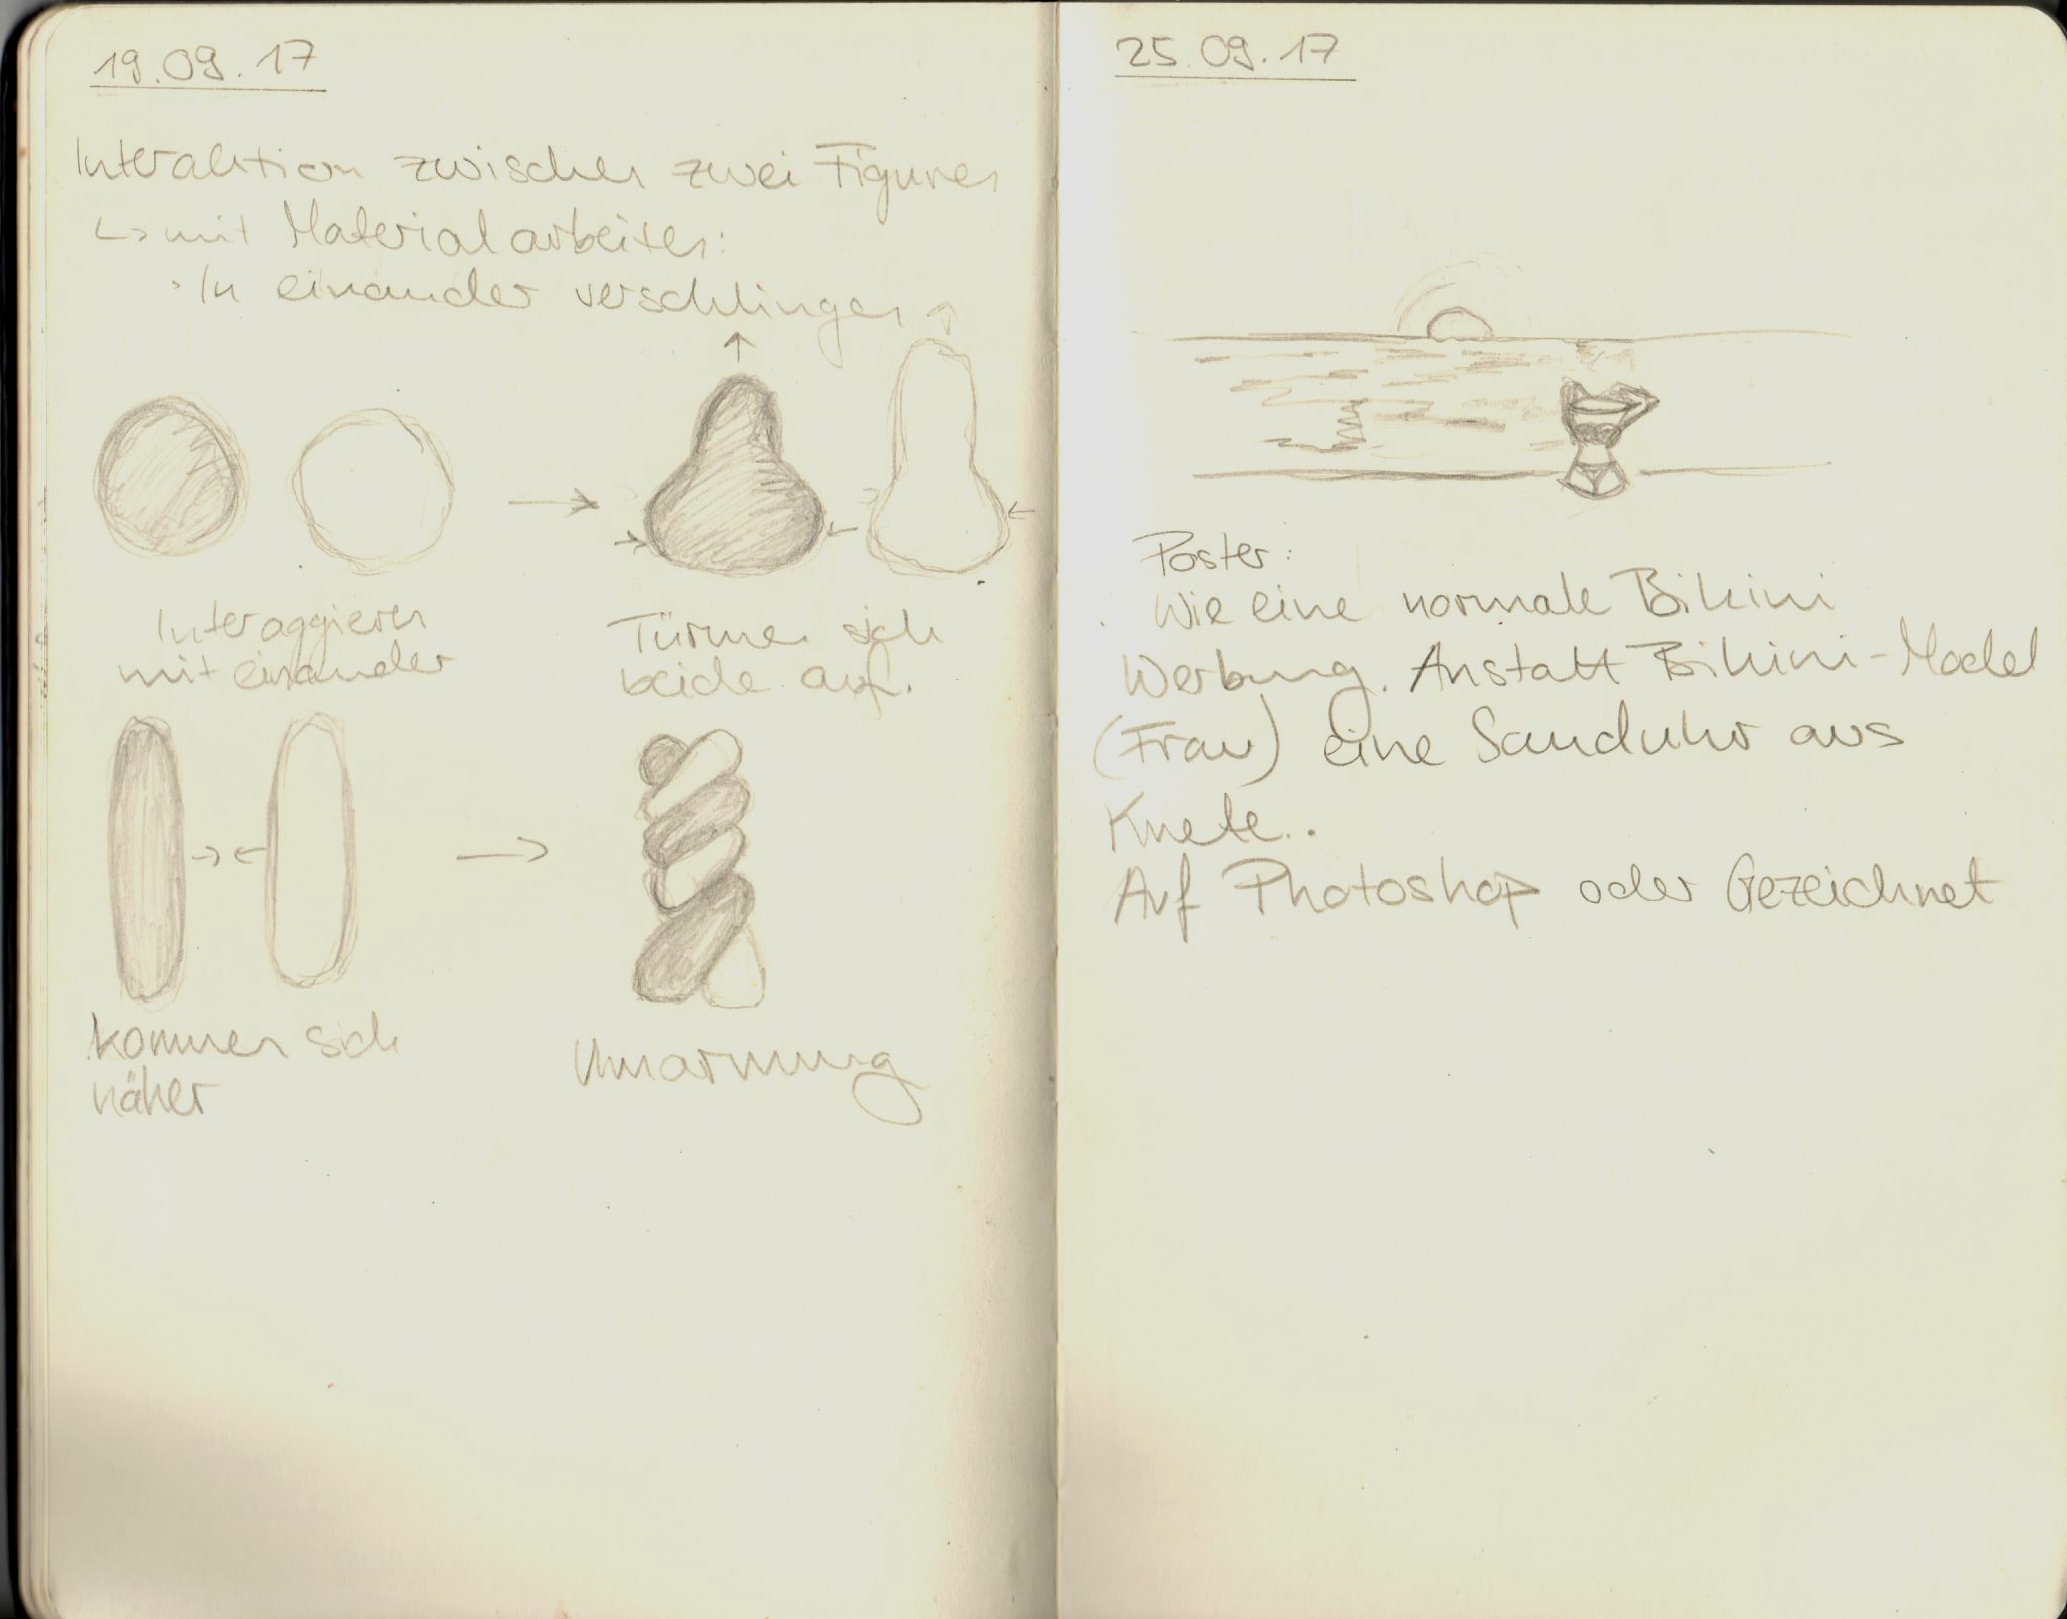 19.09.17
Interaktion zwischen zwei Figuren
↳ mit Material arbeiten:
· In einander verschlingen
Interaggieren
mit einander
Türmen sich
beide auf.
kommen sich
näher
Umarmung
25.09.17
Poster:
Wie eine normale Bikini
Werbung. Anstatt Bikini-Model
(Frau) eine Sanduhr aus
Knete..
Auf Photoshop oder Gezeichnet